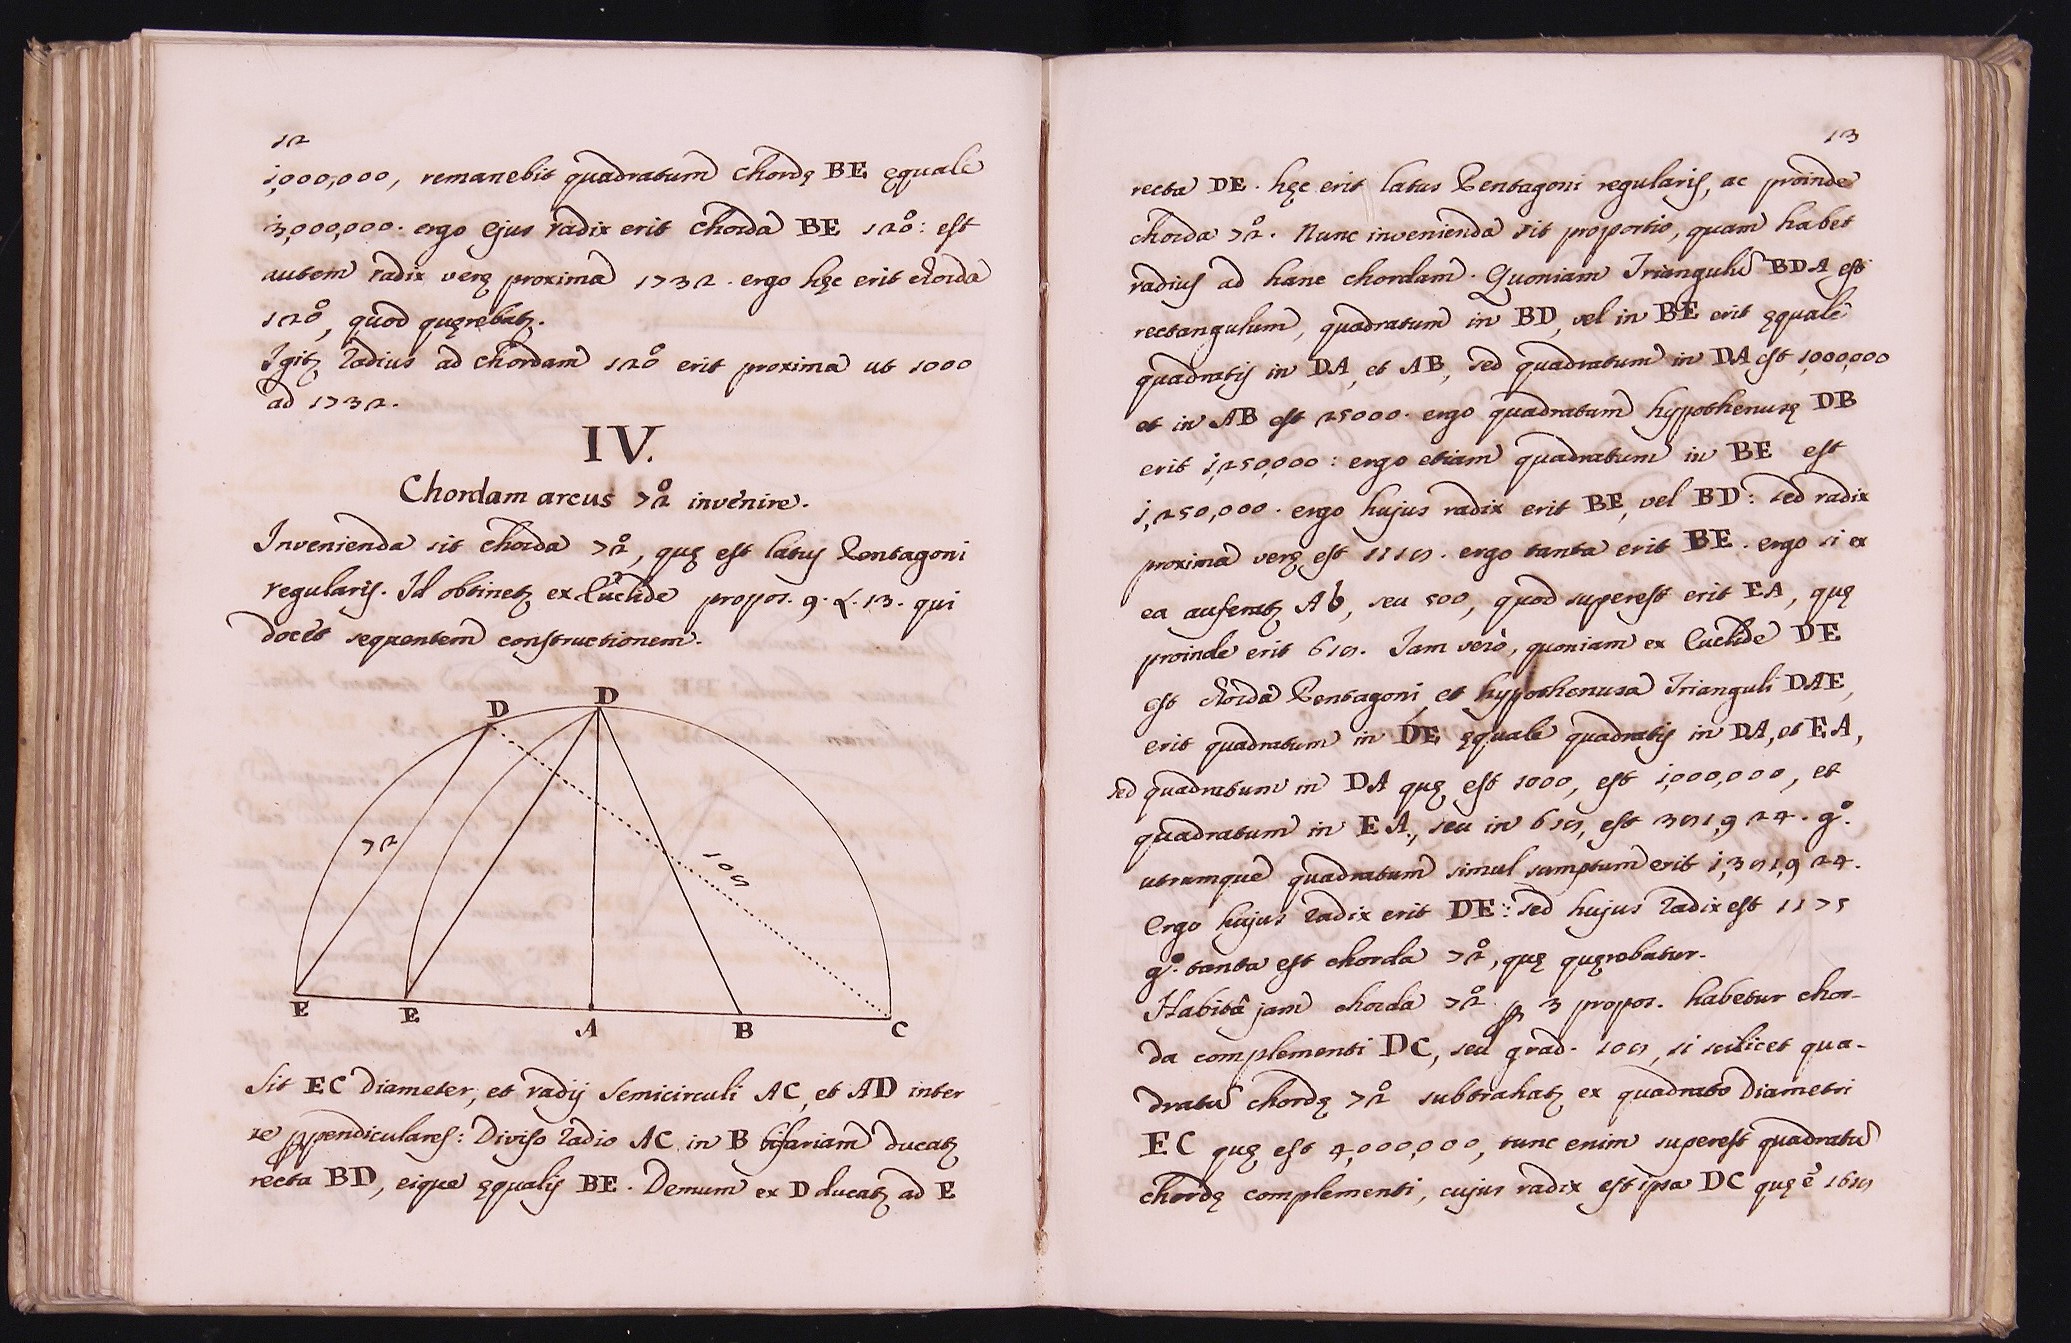 12
1,000,000, remanebit quadratum chordę BE ęquale
3,000,000. ergo ejus radix erit chorda BE 120°: est
autem radix verę proxima 1732. ergo hęc erit chorda
120°, quod quęrebatꝫ.
Igitꝫ Radius ad chordam 120° erit proxima ut 1000
ad 1732.
IV.
Chordam arcus 72° invenire.
Invenienda sit chorda 72°, quę est latus Pentagoni
regularis. Id obtinetꝫ ex Euclide propos. 9. L. 13. qui
docet sequentem constructionem.
D D
72
108
E E A B C
Sit EC Diameter, et radij semicirculi AC, et AD inter
se ꝑpendiculares: Diviso Radio AC in B bifariam ducatꝫ
recta BD, eique ęqualis BE. Demum ex D ducatꝫ ad E
13
recta DE. hęc erit latus Pentagoni regularis, ac proinde
chorda 72°. Nunc invenienda sit proportio, quam habet
radius ad hanc chordam. Quoniam Triangulũ BDA est
rectangulum, quadratum in BD, vel in BE erit ęquale
quadratis in DA, et AB, sed quadratum in DA est 1,000,000
et in AB est 25000. ergo quadratum hypothenusę DB
erit 1,250,000: ergo etiam quadratum in BE est
1,250,000. ergo hujus radix erit BE, vel BD: sed radix
proxima verę est 1118. ergo tanta erit BE. ergo si ex
ea auferatꝫ Ab, seu 500, quod superest erit EA, quę
proinde erit 618. Jam verò, quoniam ex Euclide DE
est chorda Pentagoni, et hypothenusa Trianguli DAE,
erit quadratum in DE ęquale quadratis in DA, et EA,
sed quadratum in DA quę est 1000, est 1,000,000, et
quadratum in EA, seu in 618, est 381,924. gº.
utrumque quadratum simul sumptum erit 1,381,924.
Ergo hujus Radix erit DE: sed hujus Radix est 1175
gº. tanta est chorda 72°, quę quęrebatur.
Habitâ jam chorda 72° ꝑ 3 propos. habetur chor-
da complementi DC, seu grad. 108, si scilicet qua-
dratũ chordę 72° subtrahatꝫ ex quadrato Diametri
EC quę est 4,000,000, tunc enim superest quadratũ
chordę complementi, cujus radix est ipsa DC quę ẽ 1618